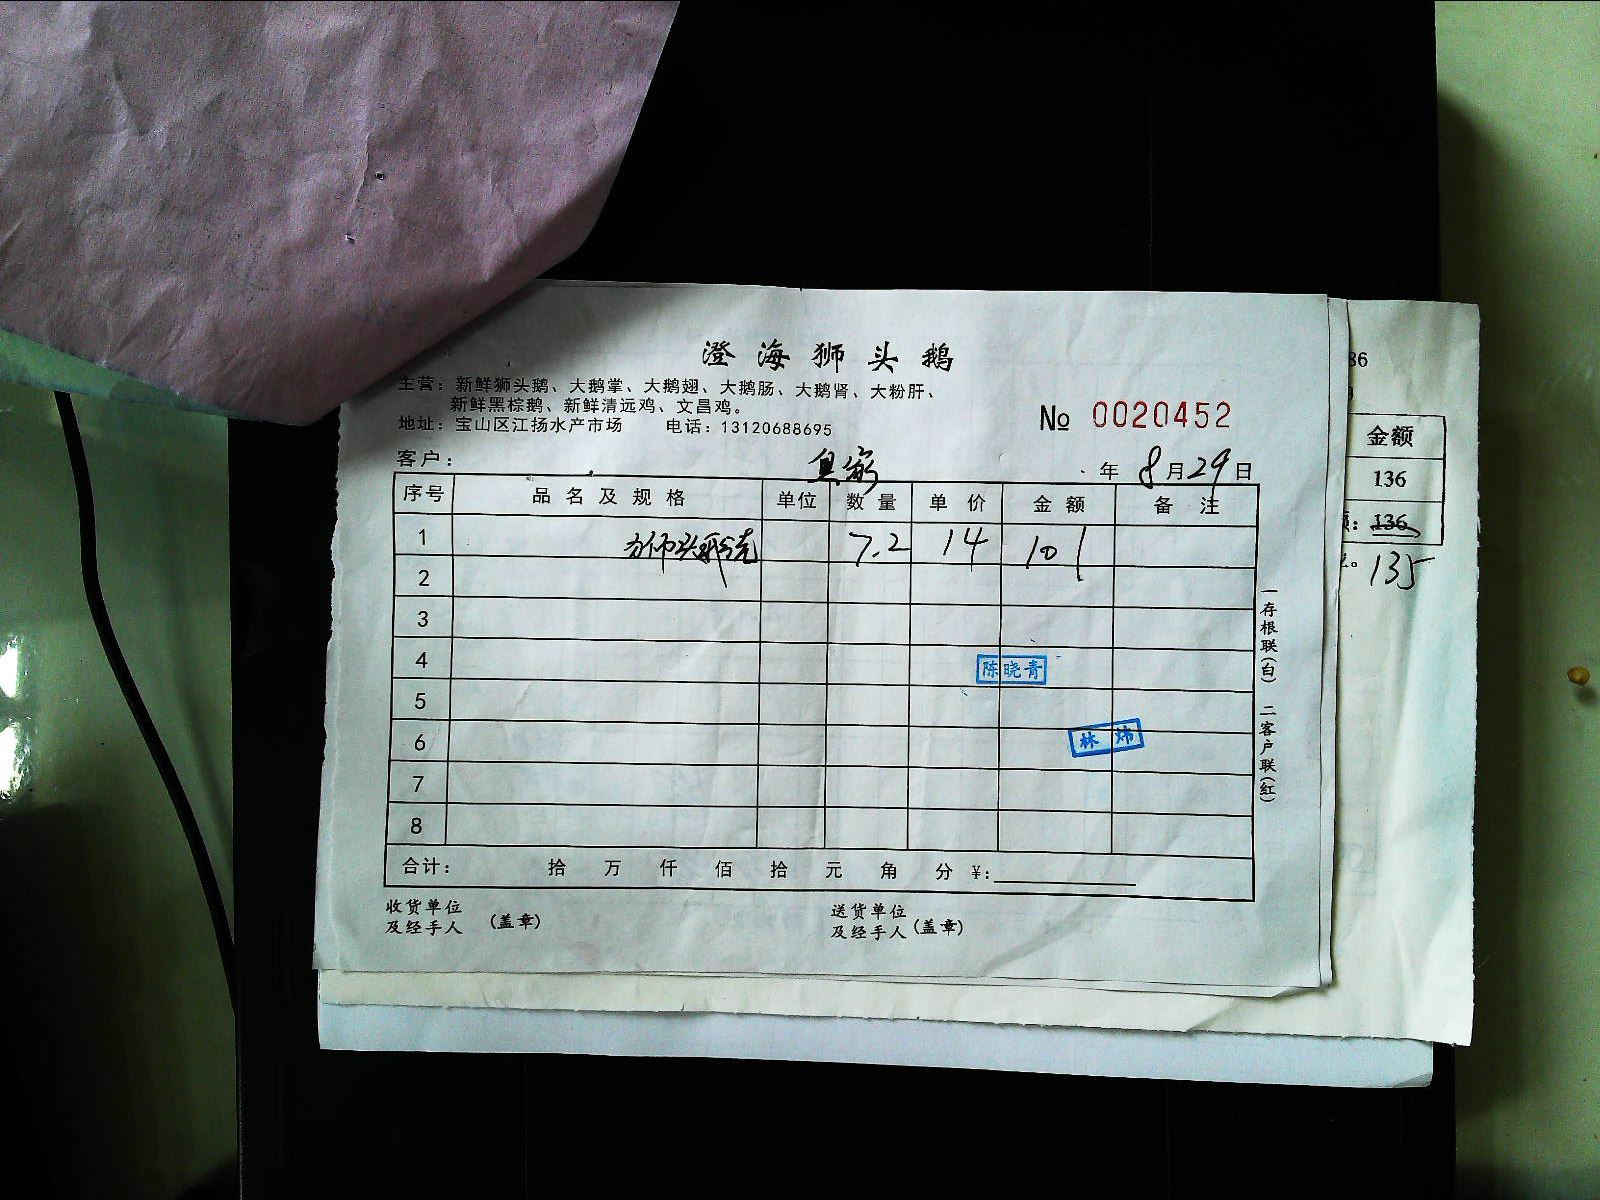 澄海狮头鹅
主营：新鲜狮头鹅、大鹅掌、大鹅翅、大鹅肠、大鹅肾、大粉肝、
新鲜黑棕鹅、新鲜清远鸡、文昌鸡。
地址：宝山区江扬水产市场 电话：13120688695
№ 0020452
客户：
年 8月29日
序号 品名及规格 单位 数量 单价 金额 备注
1 狮头鹅壳 7.2 14 101
2
3
4
陈晓青
5
6
林炜
7
8
合计： 拾 万 仟 佰 拾 元 角 分 ¥:
收货单位
及经手人 (盖章)
送货单位
及经手人 (盖章)
一存根联(白) 二客户联(红)
86
金额
136
136
135